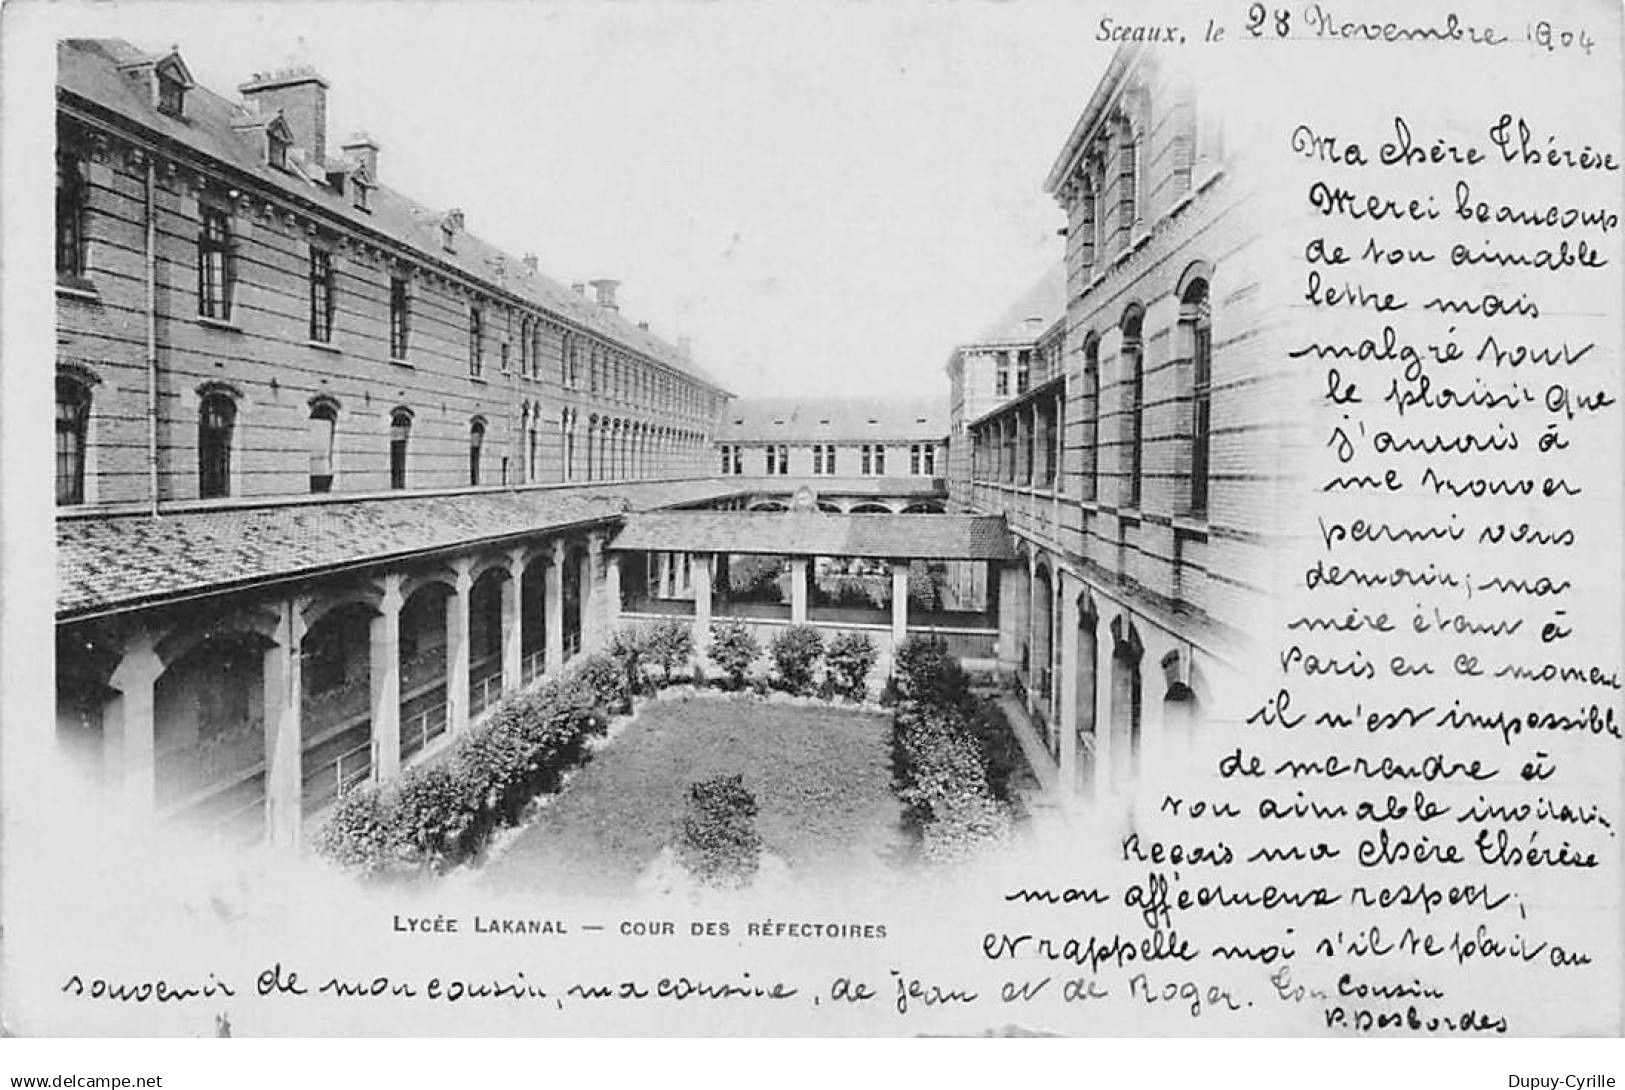 Sceaux, le 28 Novembre 1904
Ma chère Thérèse
Merci beaucoup
de ton aimable
lettre mais
malgré tout
le plaisir que
j'aurais à
me trouver
parmi vous
demain, ma
mère étant à
Paris en ce moment
il m'est impossible
de me rendre à
ton aimable invitation.
Reçois ma chère Thérèse
mon affectueux respect,
et rappelle moi s'il te plait au
souvenir de mon cousin, ma cousine, de jean et de Roger. Ton Cousin
P. Desbordes
LYCÉE LAKANAL — COUR DES RÉFECTOIRES
www.delcampe.net
Dupuy-Cyrille